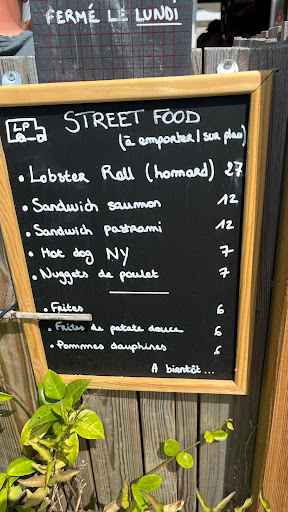 FERMÉ LE LUNDI
LP
STREET FOOD
(à emporter / sur place)
• Lobster Roll (homard) 27
• Sandwich saumon 12
• Sandwich pastrami 12
• Hot dog NY 7
• Nuggets de poulet 7
• Frites 6
• Frites de patate douce 6
• Pommes dauphines 6
A bientôt...